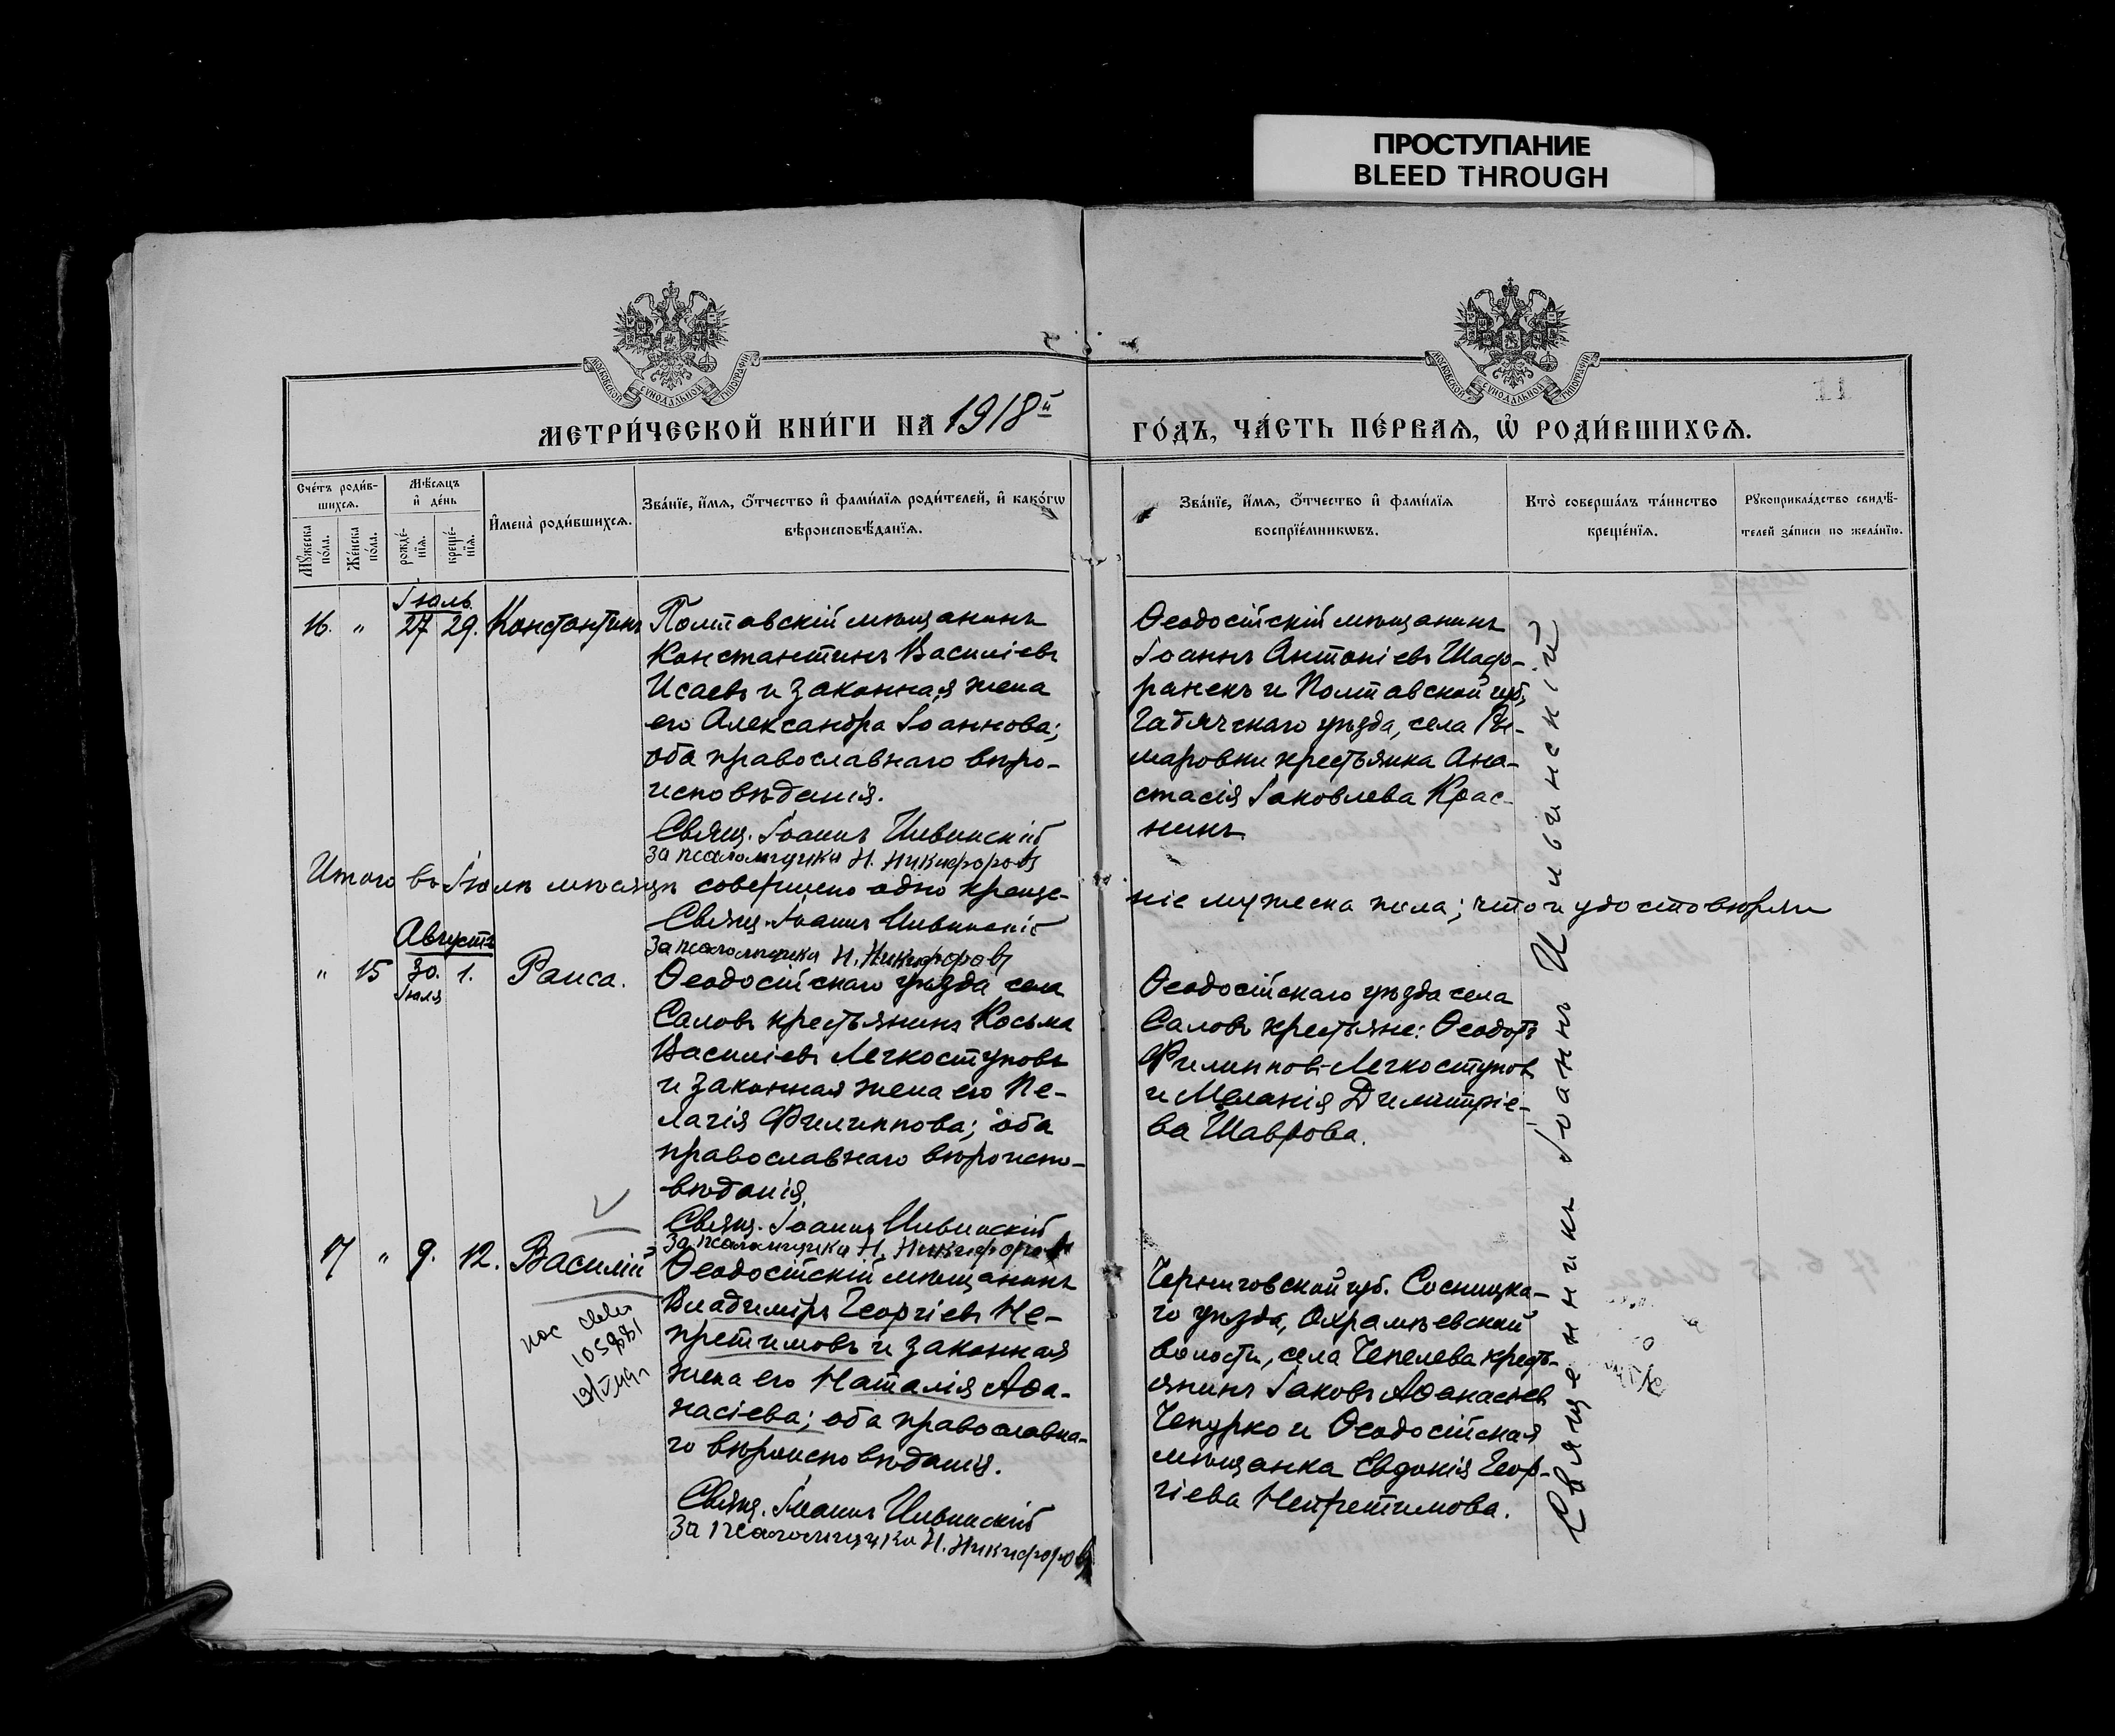 ПРОСТУПАНИЕ
BLEED THROUGH
МОСКОВСКОЙ СУНОДАЛЬНОЙ ТИПОГРАФІИ
МОСКОВСКОЙ СУНОДАЛЬНОЙ ТИПОГРАФІИ
11
МЕТРИ́ЧЕСКОЙ КНИ́ГИ НА 1918й
ГО́ДЪ, ЧА́СТЬ ПЕ́РВАЯ, Ѽ РОДИ́ВШИХСЯ.
Сче́тъ роди́в-
шихся.
Мꙋ́жеска
по́ла.
Же́нска
по́ла.
Мѣ́сяцъ
и҆ де́нь
рожде́-
нїя.
креще́-
нїя.
И҆мена̀ роди́вшихся.
Зва́нїе, и҆́мя, ѻ҆́тчество и҆ фами́лїя роди́телей, и҆ како́гѡ
вѣроисповѣ́данїя.
Зва́нїе, и҆́мя, ѻ҆́тчество и҆ фами́лїя
воспрїе́мникѡвъ.
Кто̀ соверша́лъ та́инство
креще́нїя.
Рꙋкоприкла́дство свидѣ́-
телей за́писи по жела́нїю.
Іюль
16. " 27 29. Константинъ
Полтавскій мѣщанинъ
Константинъ Василіевъ
Исаевъ и законная жена
его Александра Іоаннова;
оба православнаго вѣро-
исповѣданія.
Свящ. Іоаннъ Ильинскій
За псаломщика Н. Никифоровъ
Ѳеодосійскій мѣщанинъ
Іоаннъ Антоніевъ Шаф-
ранекъ и Полтавской губ.,
Гадячскаго уѣзда, села
маровки крестьянка Ана-
стасія Іаковлева Крас-
никъ.
Итого въ Іюлѣ мѣсяцѣ совершено одно креще-
ніе мужеска пола; что и удостовѣряли
Свящ. Іоаннъ Ильинскій
За псаломщика Н. Никифоровъ
Августъ
" 15 30. 1. Раиса.
Іюля
Ѳеодосійскаго уѣзда села
Саловъ крестьянинъ Косьма
Василіевъ Легкоступовъ
и законная жена его Пе-
лагія Филиппова; оба
православнаго вѣроиспо-
вѣданія.
Свящ. Іоаннъ Ильинскій
За псаломщика Н. Никифоровъ
Ѳеодосійскаго уѣзда села
Саловъ крестьяне: Ѳеодотъ
Филипповъ Легкоступовъ
и Меланія Димитріе-
ва Шаврова.
17 " 9. 12. Василій
105881
Ѳеодосійскій мѣщанинъ
Владиміръ Георгіевъ Не-
претимовъ и законная
жена его Наталія Аѳа-
насіева; оба православна-
го вѣроисповѣданія.
Свящ. Іоаннъ Ильинскій
За псаломщика Н. Никифоровъ
Черниговской губ. Сосницка-
го уѣзда, Охрамѣевской
волости, села Чепелева кресть-
янинъ Іаковъ Аѳанасіевъ
Чепурко и Ѳеодосійская
мѣщанка Евдокія Геор-
гіева Непретимова.
Священникъ Іоаннъ Ильинскій